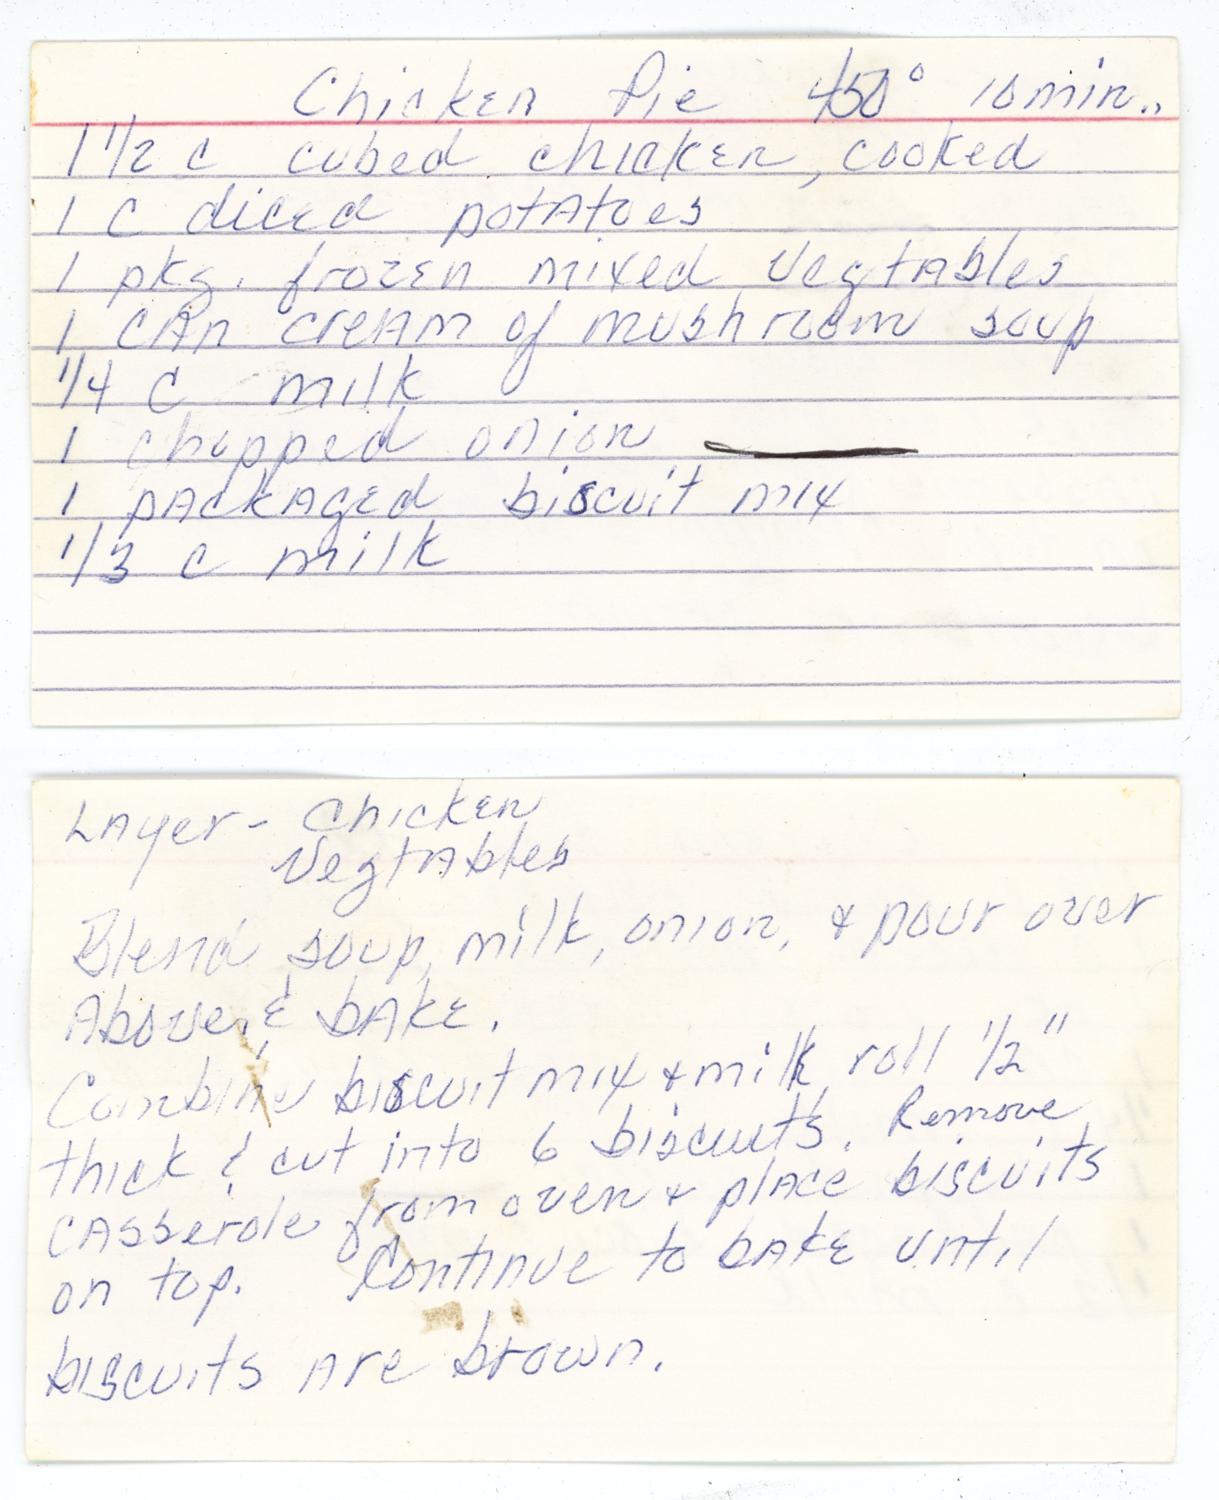 Chicken Pie 450° 10 min..
1 1/2 c cubed chicken, cooked
1 c diced potatoes
1 pkg. frozen mixed vegtables
1 can cream of mushroom soup
1/4 c milk
1 chopped onion
1 packaged biscuit mix
1/3 c milk
Layer - Chicken
Vegtables
Blend soup, milk, onion, & pour over
Above, & bake.
Combine biscuit mix & milk, roll 1/2"
thick & cut into 6 biscuits. Remove
casserole from oven & place biscuits
on top. Continue to bake until
biscuits are brown.